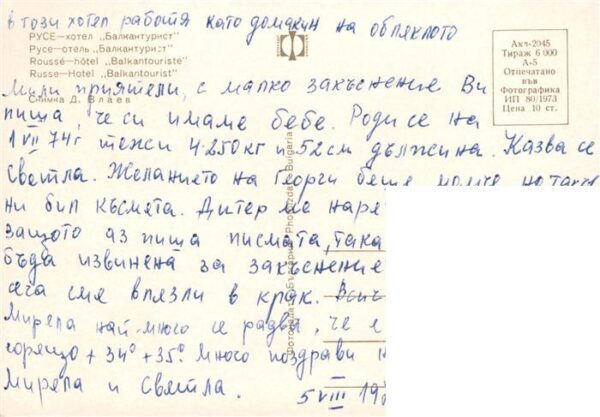 в този хотел работя като домакин на облеклото
РУСЕ—хотел „Балкантурист"
Русе—отель „Балкантурист"
Roussé—hôtel „Balkantouriste"
Russe—Hotel „Balkantourist"
Снимка Д. Влаев
Акл-2045
Тираж 6 000
А-5
Отпечатано
във
Фотографика
ИП 80/1973
Цена 10 ст.
Мили приятели, с малко закъснение Ви
пиша, че си имаме бебе. Роди се на
1 VII 74 г тежи 4.250 кг и 52 см дължина. Казва се
Светла. Желанието на Георги беше момче но такъв
ни бил късмета. Дитер ме
защото аз пиша писмата, така
бъда извинена за закъснение
сега сме влязли в крак.
Мирела най-много се радва, че е
горещо + 34° + 35° Много поздрави
Мирела и Светла.
5 VIII 19
Фотоиздат България Photoizdat Bulgaria